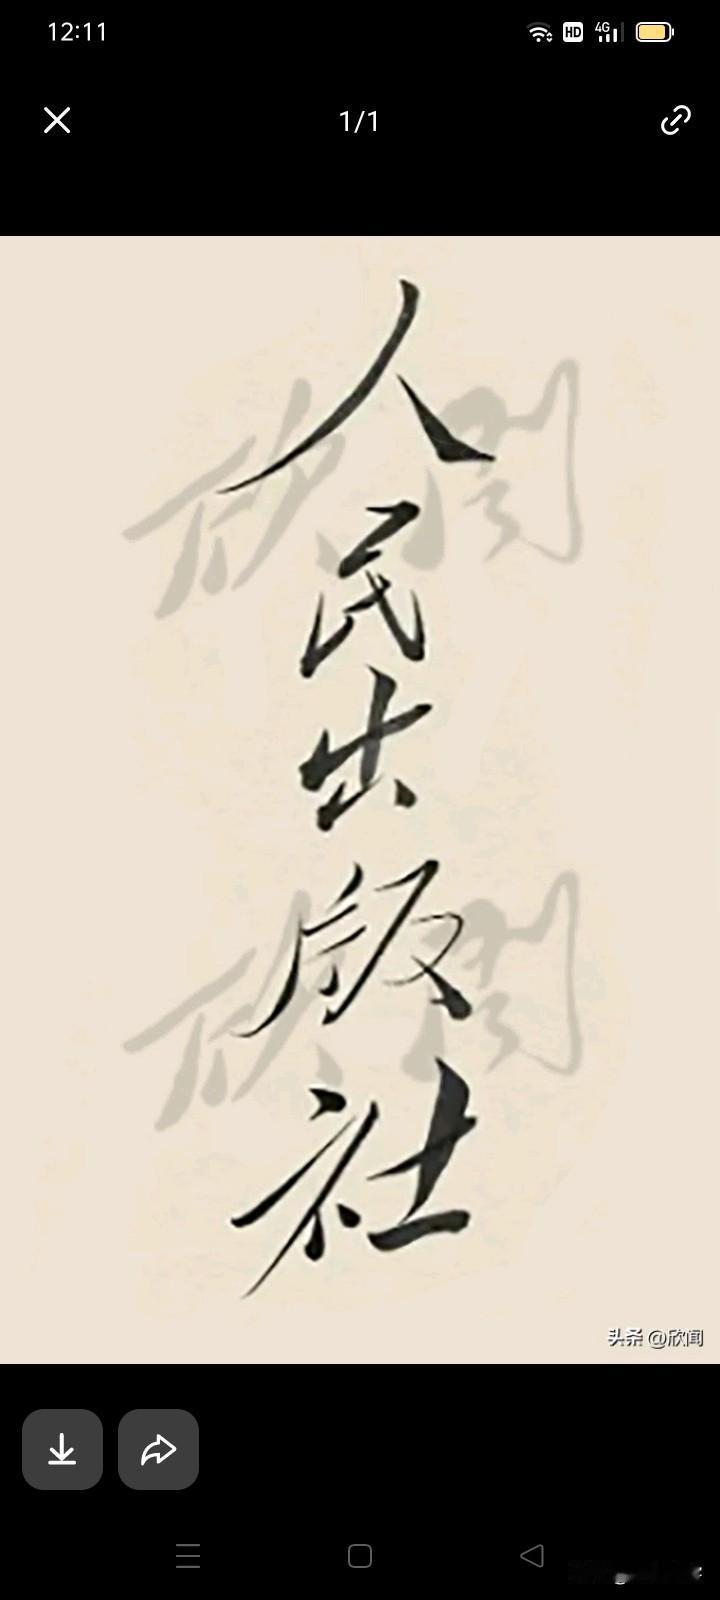 12:11
HD
4G
1/1
人民出版社
头条 @欣闻